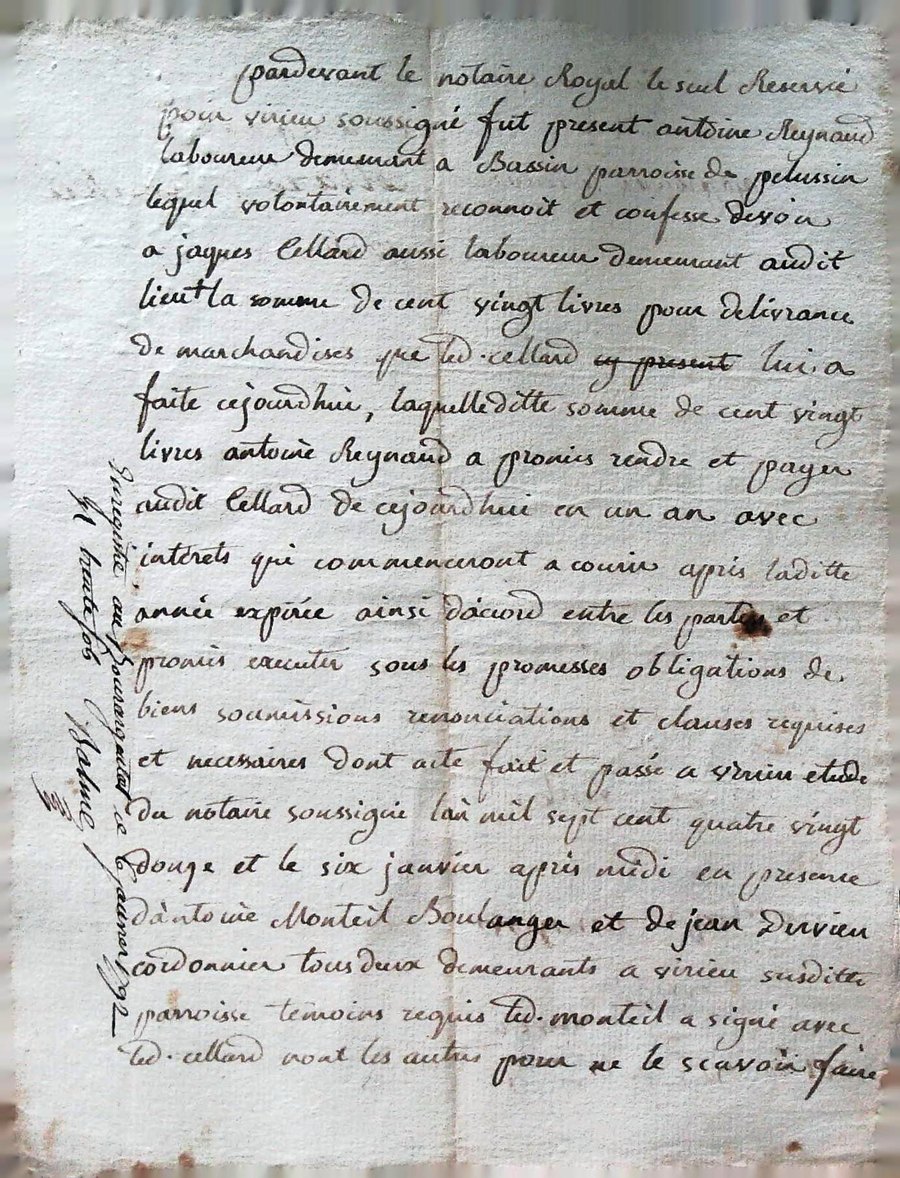 pardevant le notaire Royal le seul Reservé
pour virieu soussigné fut present antoine Reynaud
laboureur demeurant a Bassin parroisse de pelussin
lequel volontairement reconnoit et confesse devoir
a jaques Cellard aussi laboureur demeurant audit
lieu la somme de cent vingt livres pour delivrance
de marchandises que led. cellard cy present lui a
faite cejourdhui, laquelleditte somme de cent vingt
livres antoine Reynaud a promis rendre et payer
audit Cellard de cejourdhui en un an avec
interets qui commenceront a courir apres laditte
année expirée ainsi dacord entre les parties et
promis executer sous les promesses obligations de
biens soumissions renonciations et clauses requises
et necessaires dont acte fait et passé a virieu etude
du notaire soussigné lan mil sept cent quatre vingt
douze et le six janvier apres midi en presence
dantoine Monteil Boulanger et de jean Dervieu
cordonnier tous deux demeurants a virieu susditte
parroisse temoins requis led. monteil a signé avec
led. cellard nont les autres pour ne le scavoir faire
Enregistré au Bourgargental ce janvier 1792
Balme